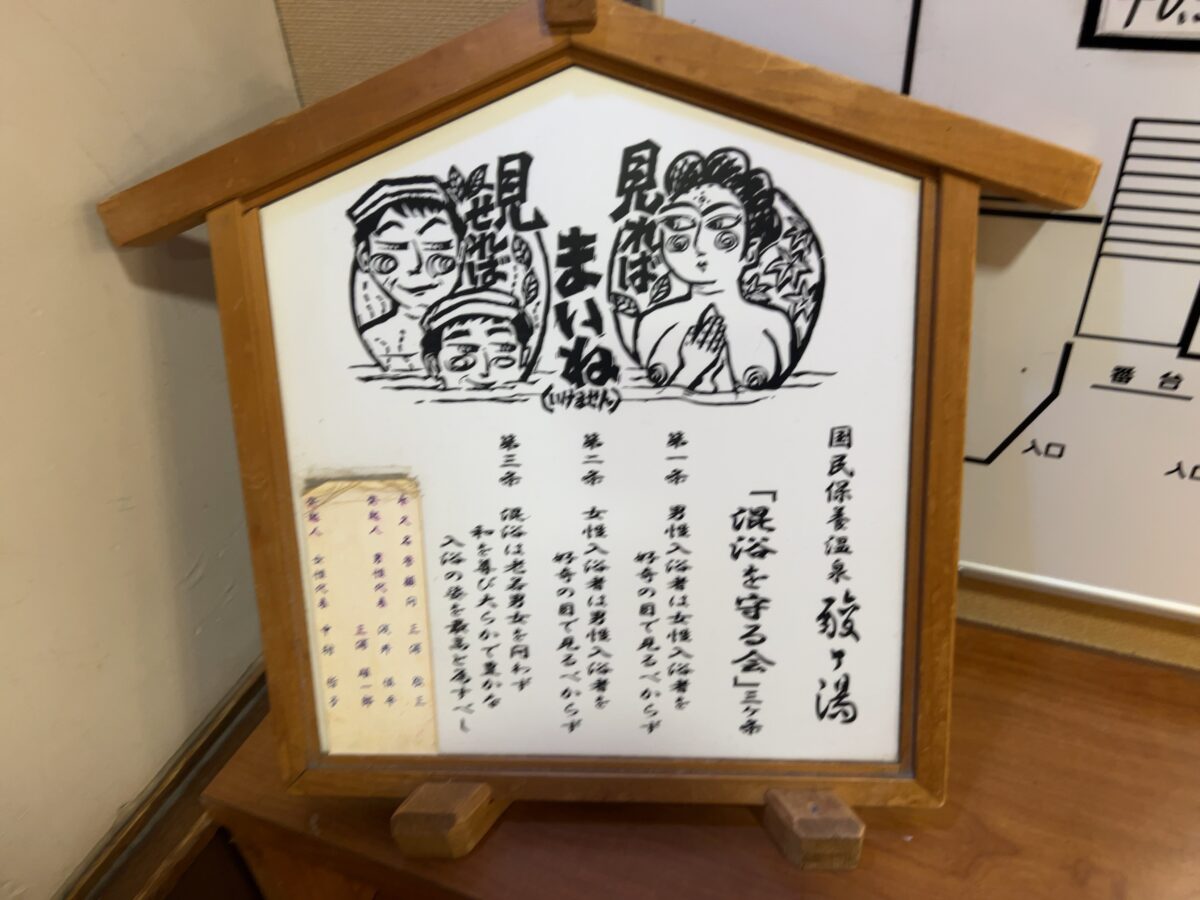 見れば
見せれば
まいね
(いけません。)
国民保養温泉 酸ヶ湯
「混浴を守る会」三ヶ条
第一条 男性入浴者は女性入浴者を
好奇の目で見るべからず
第二条 女性入浴者は男性入浴者を
好奇の目で見るべからず
第三条 混浴は老若男女を問わず
和を尊び大らかで豊かな
入浴の姿を最高と為すべし
名誉顧問 三浦 敬三
発起人 男性代表
三浦 雄一郎
発起人 女性代表
番台
入口
入口